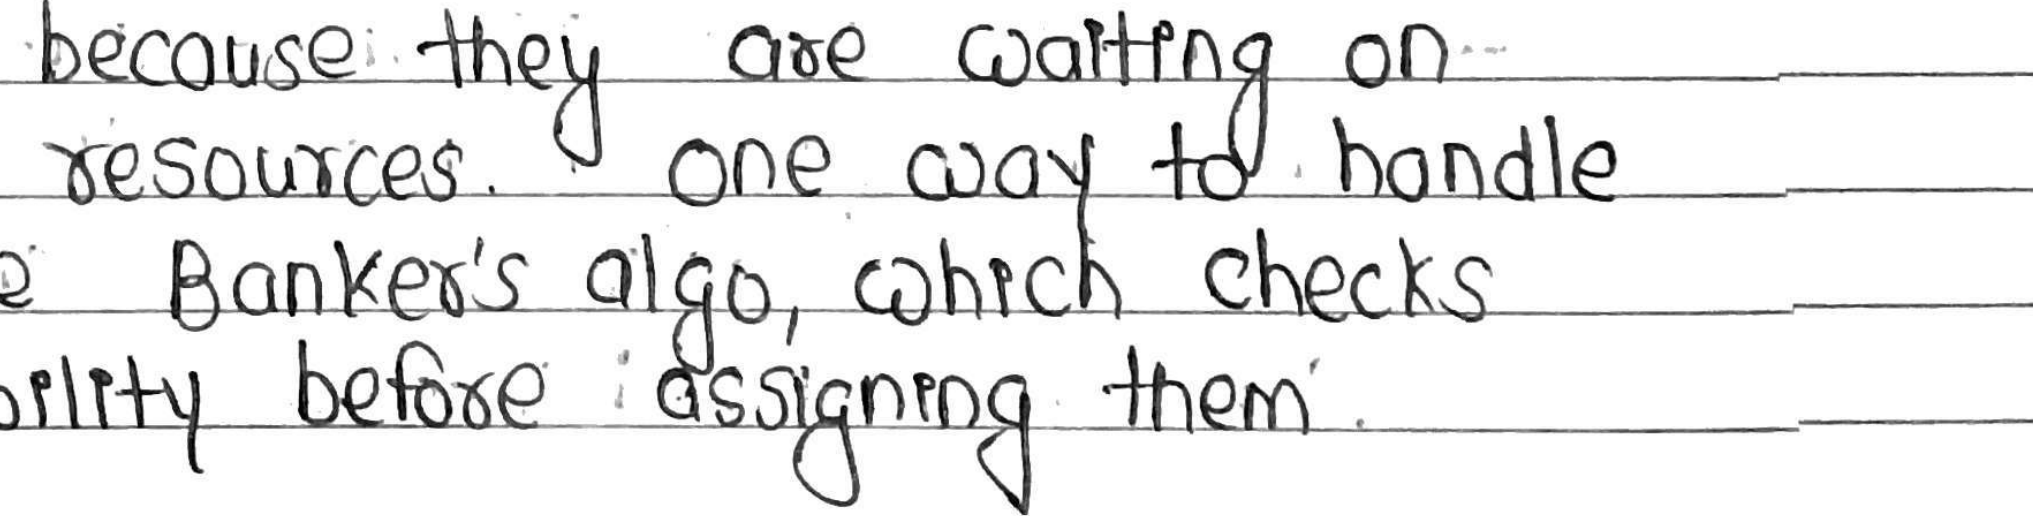 because they are waiting on
resources. one way to handle
e Banker's algo, which checks
bility before assigning them.